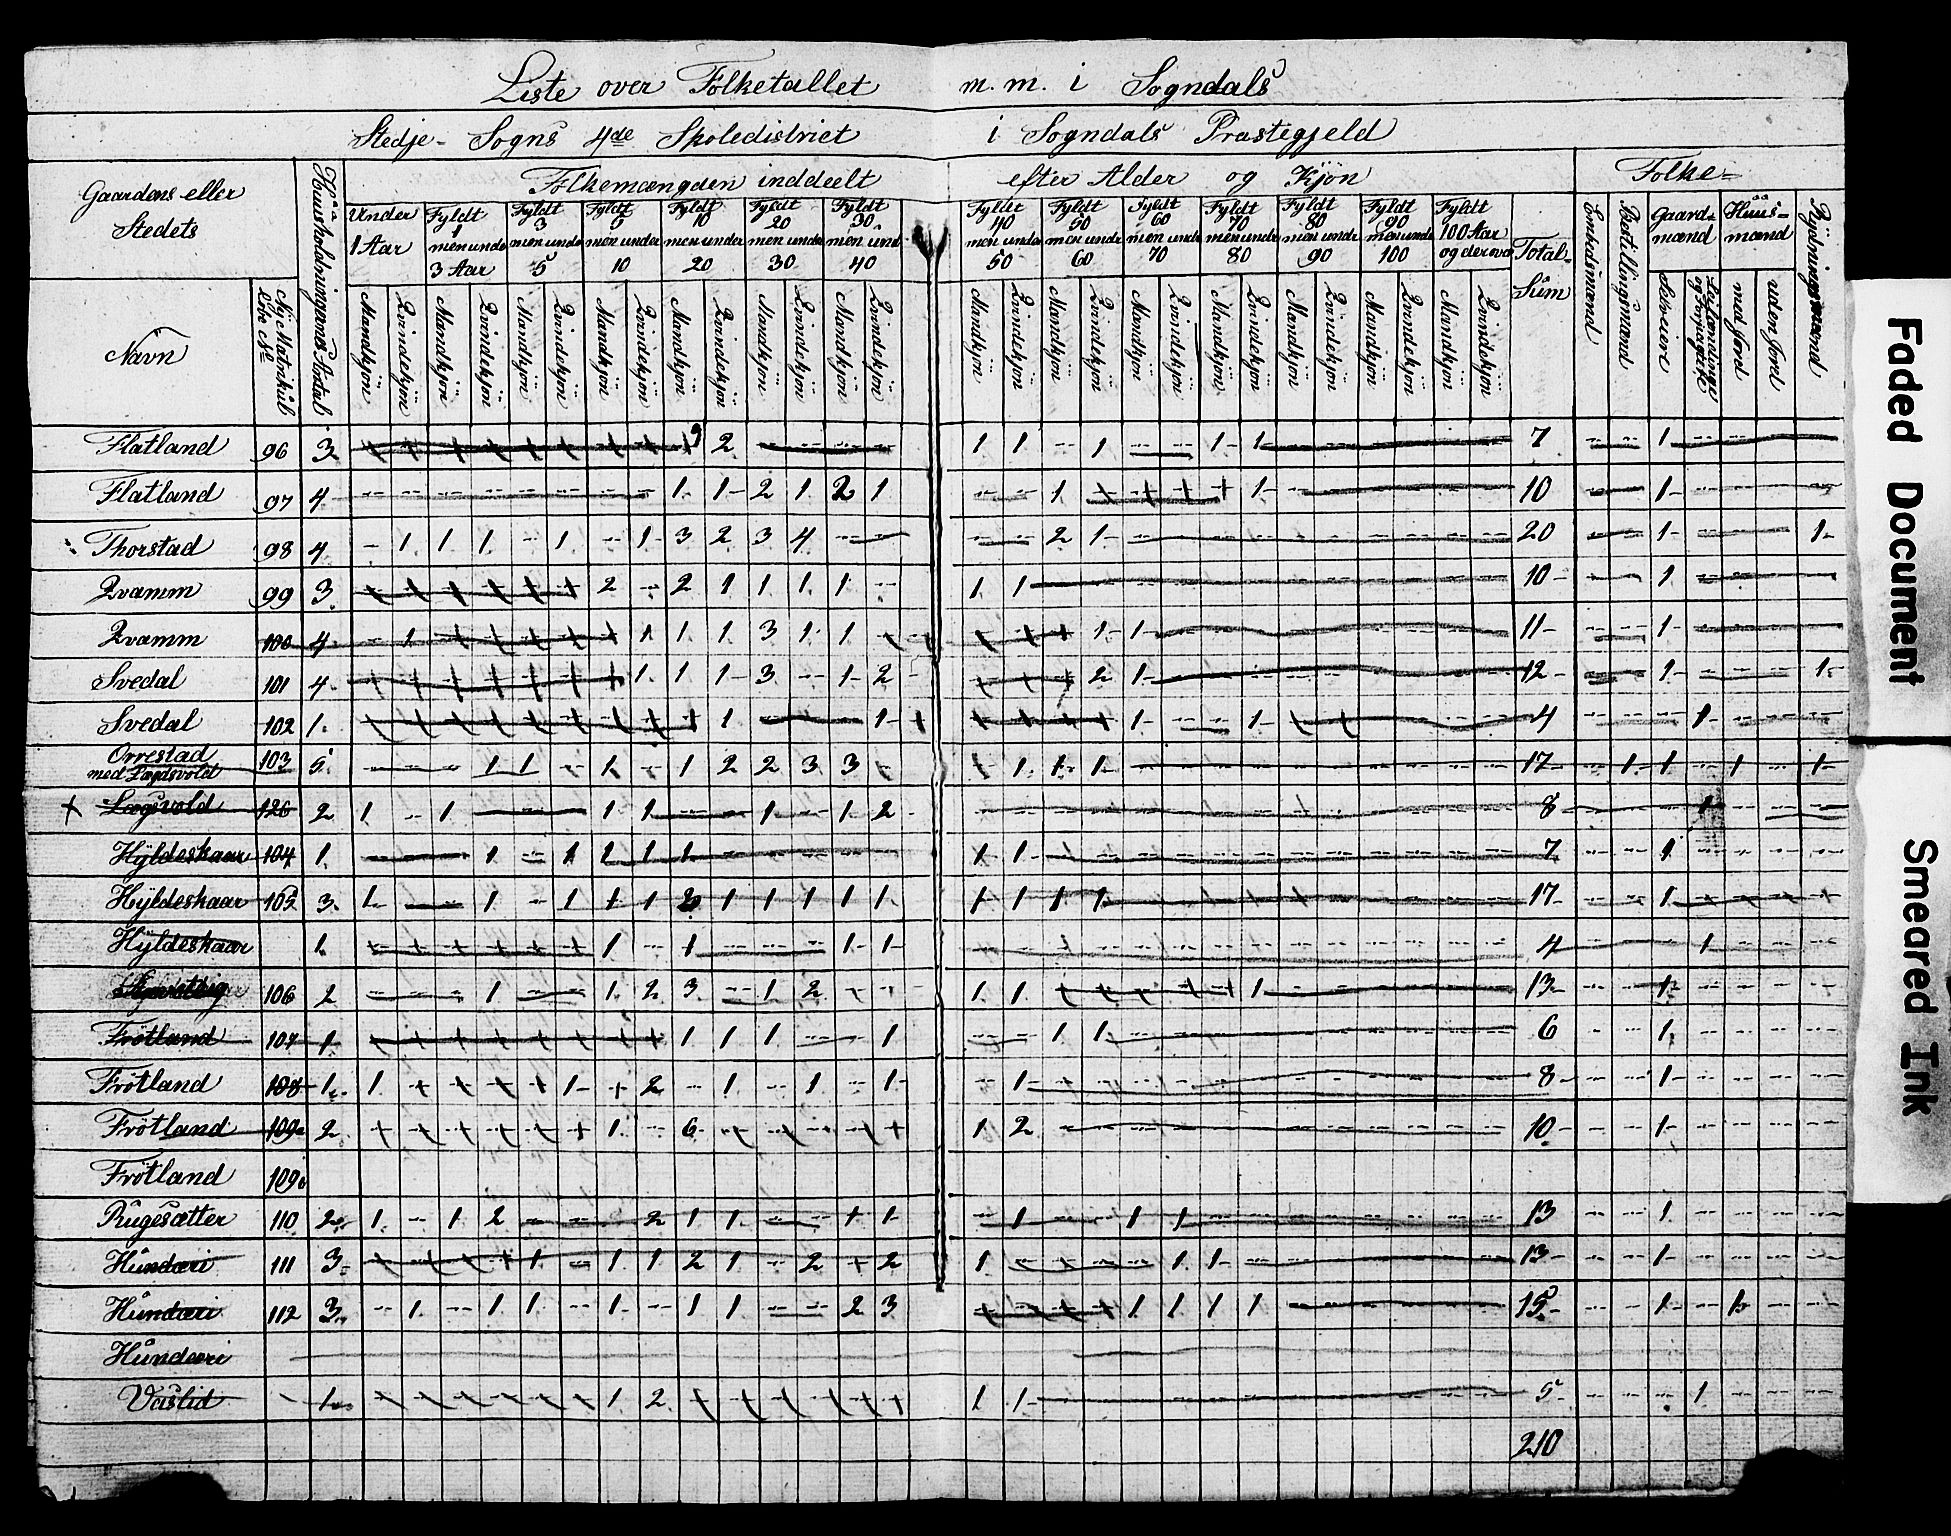 Liste over Folketallet m. m. i Sogndals
Stedje- Sogns 4de Skoledistrict i Sogndals Præstegjeld
Folkemængden inddeelt efter Alder og Kjön Folke-
Gaardens eller Stedets
Navn
Nye Matrikul Löbe No
Huusholdningernes Antal
Under 1 Aar
Fyldt 1 men under 3 Aar
Fyldt 3 men under 5
Fyldt 5 men under 10
Fyldt 10 men under 20
Fyldt 20 men under 30
Fyldt 30 men und 40
Fyldt 40 men under 50
Fyldt 50 men under 60
Fyldt 60 men under 70
Fyldt 70 men under 80
Fyldt 80 men under 90
Fyldt 90 men under 100
Fyldt 100 Aar og derover
Total-Sum
Embedsmænd
Bestillingsmænd
Gaard-mænd
Selveiere
Leilændinge og
Huus-mænd
med Jord
uden Jord
Rydningsmænd
Mandkjön Qvindekjön Mandkjön Qvindekjön Mandkjön Qvindekjön Mandkjön Qvindekjön Mandkjön Qvindekjön Mandkjön Qvindekjön Mandkjön Qvindekjön
Mandkjön Qvindekjön Mandkjön Qvindekjön Mandkjön Qvindekjön Mandkjön Qvindekjön Mandkjön Qvindekjön Mandkjön Qvindekjön Mandkjön Qvindekjön
Flatland 96 3 2 1 1 1 1 1 7 1
Flatland 97 4 1 1 2 1 2 1 1 1 10 1
Thorstad 98 4 1 1 1 1 1 3 2 3 4 2 1 20 1 1
Qvamm 99 3 2 2 1 1 1 1 1 1 10 1
Qvamm 100 4 1 1 1 1 3 1 1 1 1 11 1
Svedal 101 4 1 1 1 3 1 2 2 1 12 1 1
Svedal 102 1 1 1 1 1 4 1
Orrestad med Lægdsvold 103 5 1 1 1 1 2 2 3 3 1 1 1 17 1 1 1 1
Lægsvold 126 2 1 1 1 1 1 1 2 8 1
Hyldeskaar 104 1 1 1 1 1 1 1 1 7 1
Hyldeskaar 105 3 1 1 1 1 1 2 1 1 1 1 1 1 1 1 1 17 1
Hyldeskaar 1 1 1 1 1 4 1
106 2 1 1 2 3 1 2 1 1 1 13 1
Frötland 107 1 1 1 1 1 1 1 6 1
Frötland 108 1 1 1 2 1 1 1 1 8 1
Frötland 109a 2 1 6 1 2 10 1
Frötland 109b
Rugesætter 110 2 1 1 2 2 1 1 1 1 1 1 1 13 1
Hundæri 111 3 1 1 1 2 1 2 2 1 1 1 13 1
Hundæri 112 3 1 1 1 1 1 1 2 3 1 1 1 1 15 1 1
Hundæri
Vaslid 1 1 2 1 1 5 1
210
Faded Document
Smeared Ink